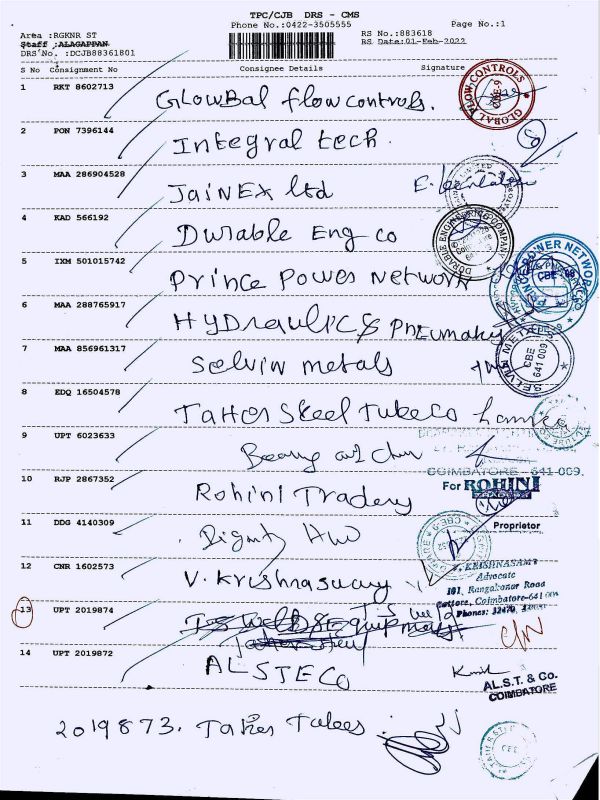 TPC/CJB DRS - CMS
Phone No.:0422-3505555
Page No.:1
Area :RGKNR ST
RS No.:883618
Staff :ALAGAPPAN
RS Date:01-Feb-2022
DRS No. :DCJB88361801
S No Consignment No Consignee Details Signature
1 RKT 8602713
GLOWBal flow controls.
GLOBAL FLOW CONTROLS
CBE-9
2 PON 7396144
Integral tech.
3 MAA 286904528
JaiNEX ltd
4 KAD 566192
Durable Eng co
DURABLE ENGINEERING COMPANY
5 IXM 501015742
Prince Power Network
6 MAA 288765917
HYDraulICS Pneumaky
7 MAA 856961317
Selvin metals
SELVIN METALS
CBE
641 009
8 EDQ 16504578
Taher Steel Tube Co
9 UPT 6023633
COIMBATORE - 641-009.
10 RJP 2867352
Rohini Traders
For ROHINI
TRADERS
Proprietor
11 DDG 4140309
Dignity HW
12 CNR 1602573
V. Krishnasway
V. KRISHNASAMY
Advocate
101, Rangakonar Road
Kattore, Coimbatore-641
Phones:
13 UPT 2019874
14 UPT 2019872
ALSTECO
AL.S.T. & Co.
COIMBATORE
2019873. Taher Tubes